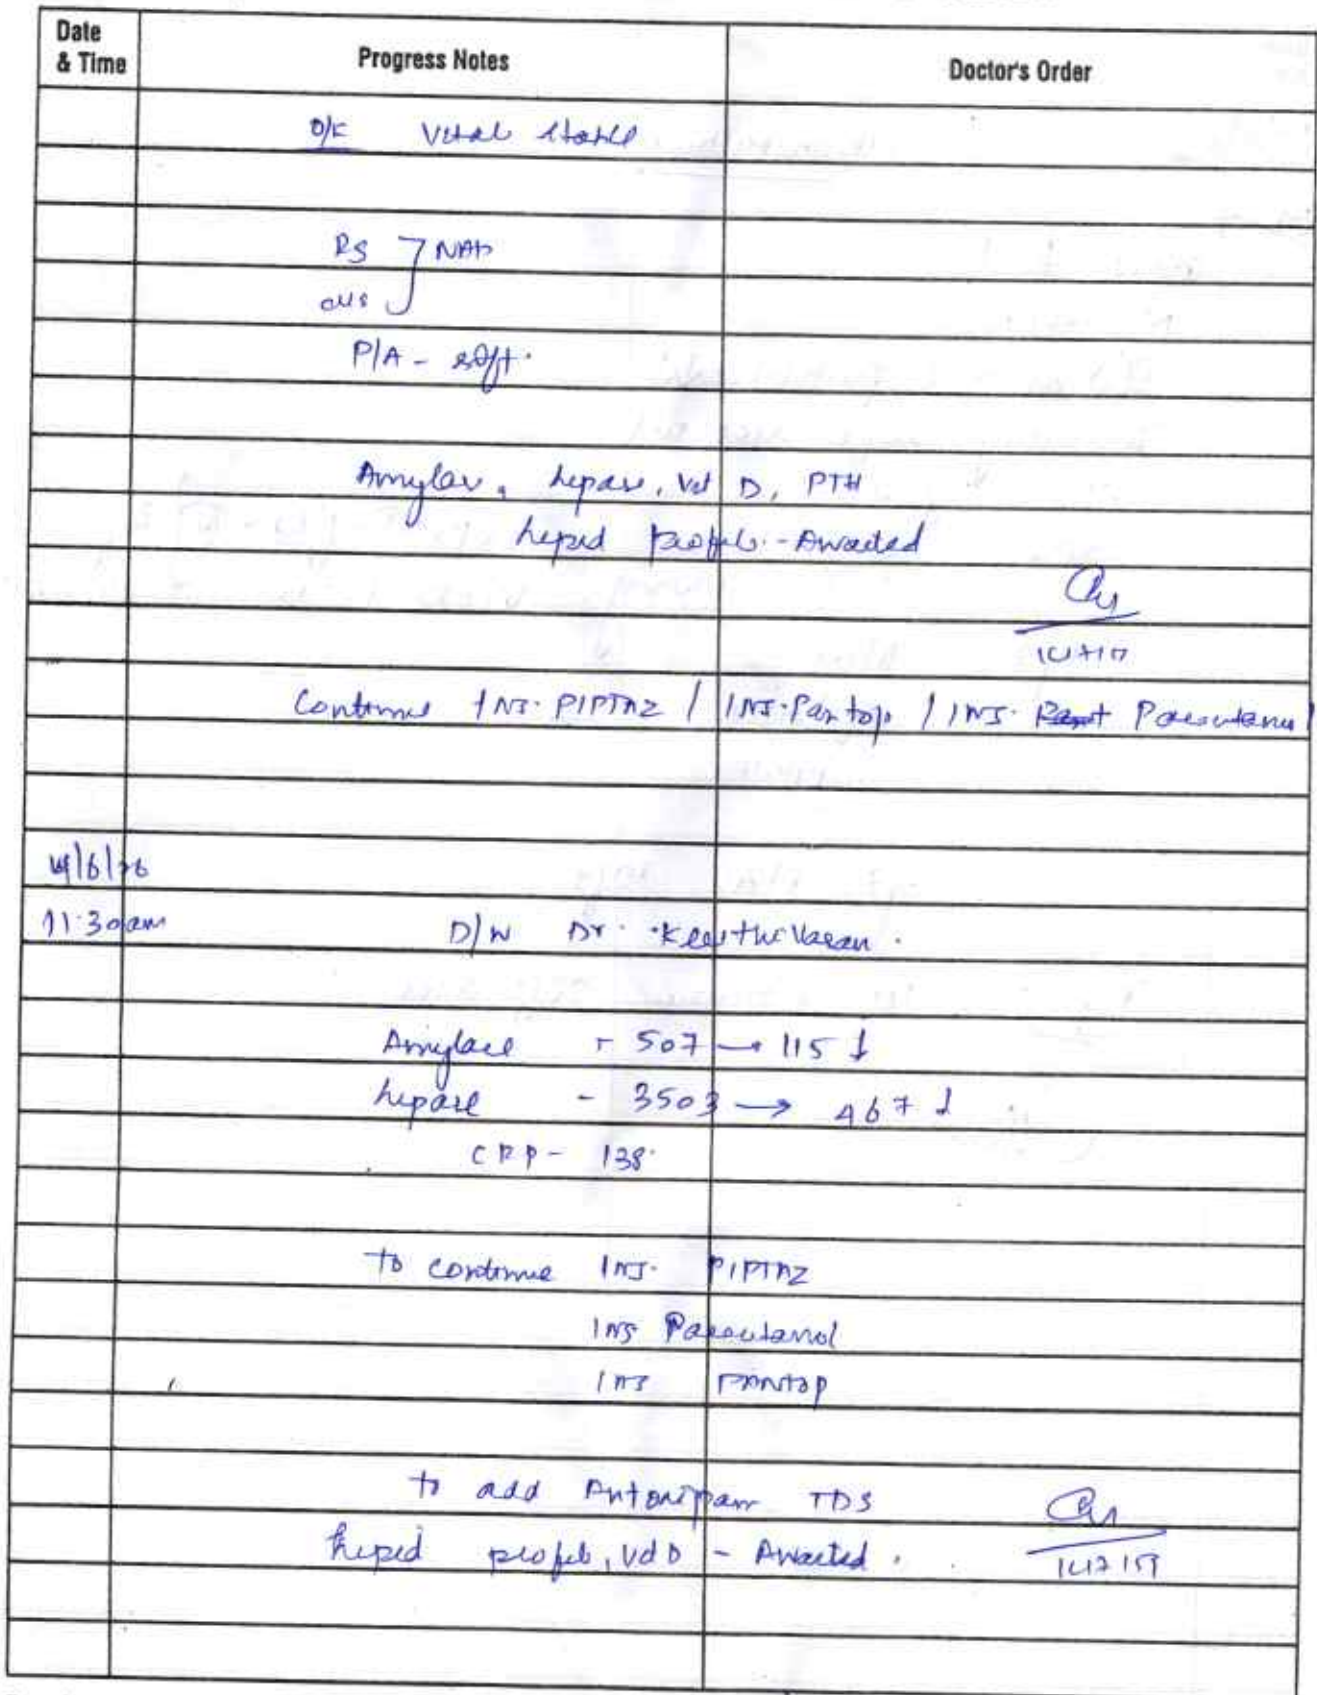 Date & Time Progress Notes Doctor's Order
O/E Vital stable
RS NAD
CVS
P/A - soft.
Amylase, Lipase, Vit D, PTH
Lipid profile - Awaited
Continue INJ. PIPTAZ / INJ. Pantop / INJ. Paracetamol
/6/
11.30am D/W Dr.
Amylase - 507 → 115 ↓
Lipase - 3503 → 467 ↓
CRP - 138.
to continue INJ. PIPTAZ
INJ Paracetamol
INJ PANTOP
to add TDS
Lipid profile, Vit D - Awaited.